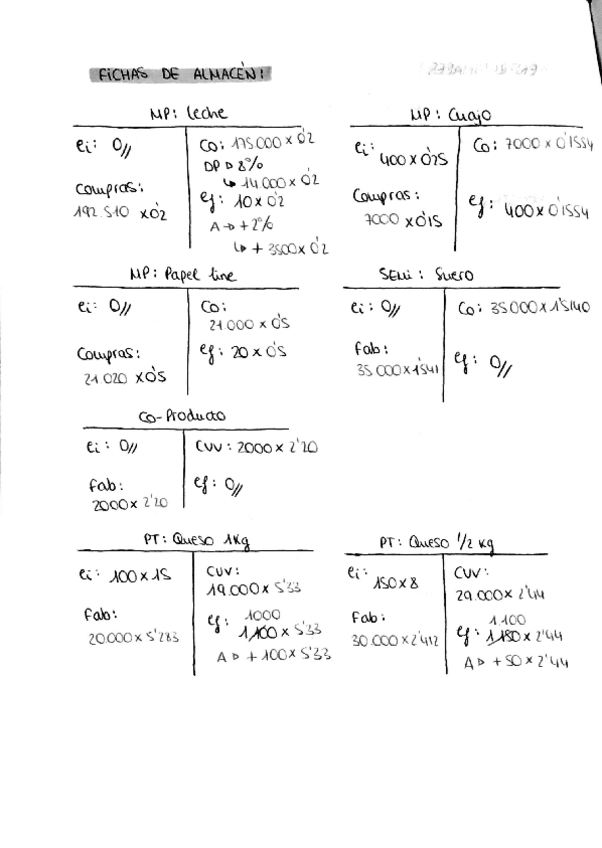 FICHAS DE ALMACÉN:
MP: Leche
ei: 0//
Compras:
192.510 x 0'2
Co: 175.000 x 0'2
DP → 8%
↳ 14.000 x 0'2
ef: 10 x 0'2
A → +2%
↳ + 3500 x 0'2
MP: Cuajo
ei: 400 x 0'25
Compras:
7000 x 0'15
Co: 7000 x 0'1554
ef: 400 x 0'1554
MP: Papel
ei: 0//
Compras:
21.020 x 0'5
Co:
21.000 x 0'5
ef: 20 x 0'5
SEMI: Suero
ei: 0//
Fab:
35.000 x 1'541
Co: 35.000 x 1'5140
ef: 0//
Co-Producto
ei: 0//
Fab:
2000 x 2'20
CVV: 2000 x 2'20
ef: 0//
PT: Queso 1Kg
ei: 100 x 15
Fab:
20.000 x 5'283
CVV:
19.000 x 5'33
1000
ef: 1.100 x 5'33
A → + 100 x 5'33
PT: Queso 1/2 Kg
ei: 150 x 8
Fab:
30.000 x 2'412
CVV:
29.000 x 2'44
1.100
ef: 1.150 x 2'44
A → + 50 x 2'44